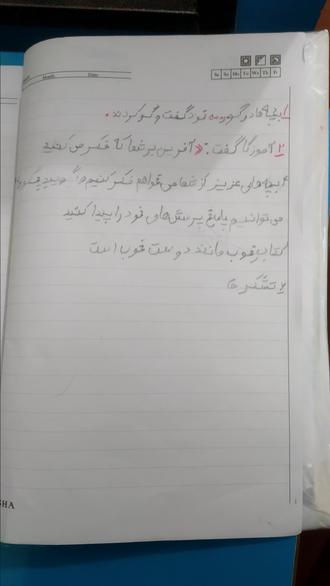 Month Date
Sa Su Mo Tu We Th Fr
۱ بچه ها در گروه خود گفت و گو کردند.
۲ آموزگار گفت: «آفرین بر شما که فکر می کنید
۳ بچه های عزیز از شما می خواهم فکر کنیم و
می توانیم پاسخ پرسش های خود را پیدا کنید
کتاب خوب مانند دوست خوب است
تشکر ها
SHA